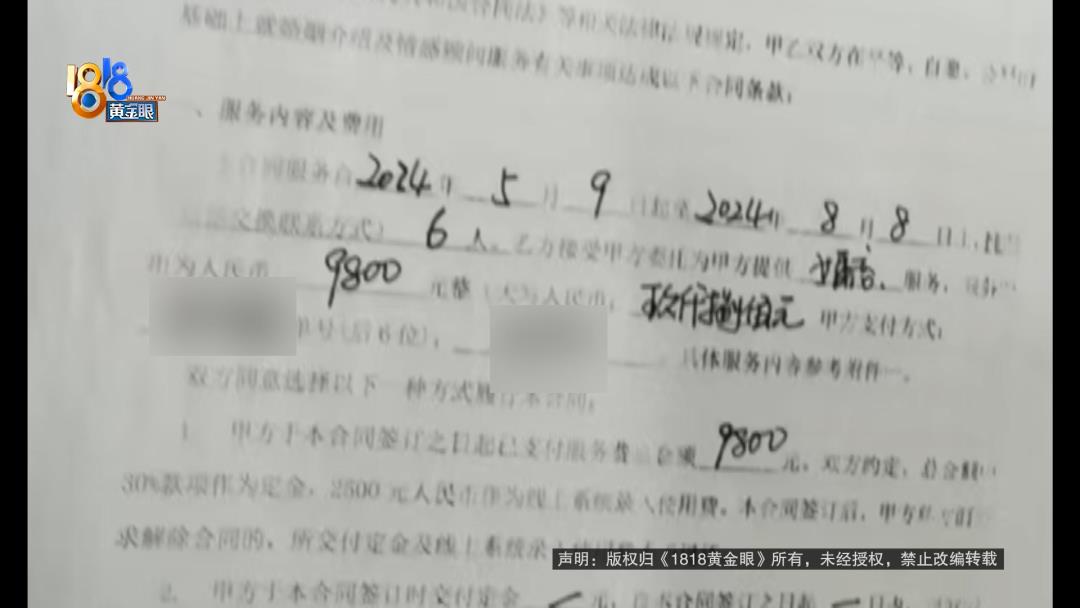 法》等相关法律法规规定,甲乙双方在平等、自愿、
基础上就婚姻介绍及情感顾问服务有关事项达成以下合同条款:
1818
HUANG JIN YAN
黄金眼
、服务内容及费用
合同服务自2024年5月9日起至2024年8月8日止,
交换联系方式)6人。乙方接受甲方委托为甲方提供 服务,
币为人民币 9800元整(大写人民币: 玖仟捌佰元 甲方支付方式:
单号(后6位): 具体服务内容参考附件一。
双方同意选择以下一种方式履行本合同:
1 甲方于本合同签订之日起已支付服务费 金额9800元。双方约定,总金额
30%款项作为定金,2500元人民币作为线上系统录入使用费。本合同签订后,甲方
求解除合同的,所交付定金及线上系统录
声明:版权归《1818黄金眼》所有,未经授权,禁止改编转载
2. 甲方于本合同签订时交付定金 元,自本合同签订之日起 日内